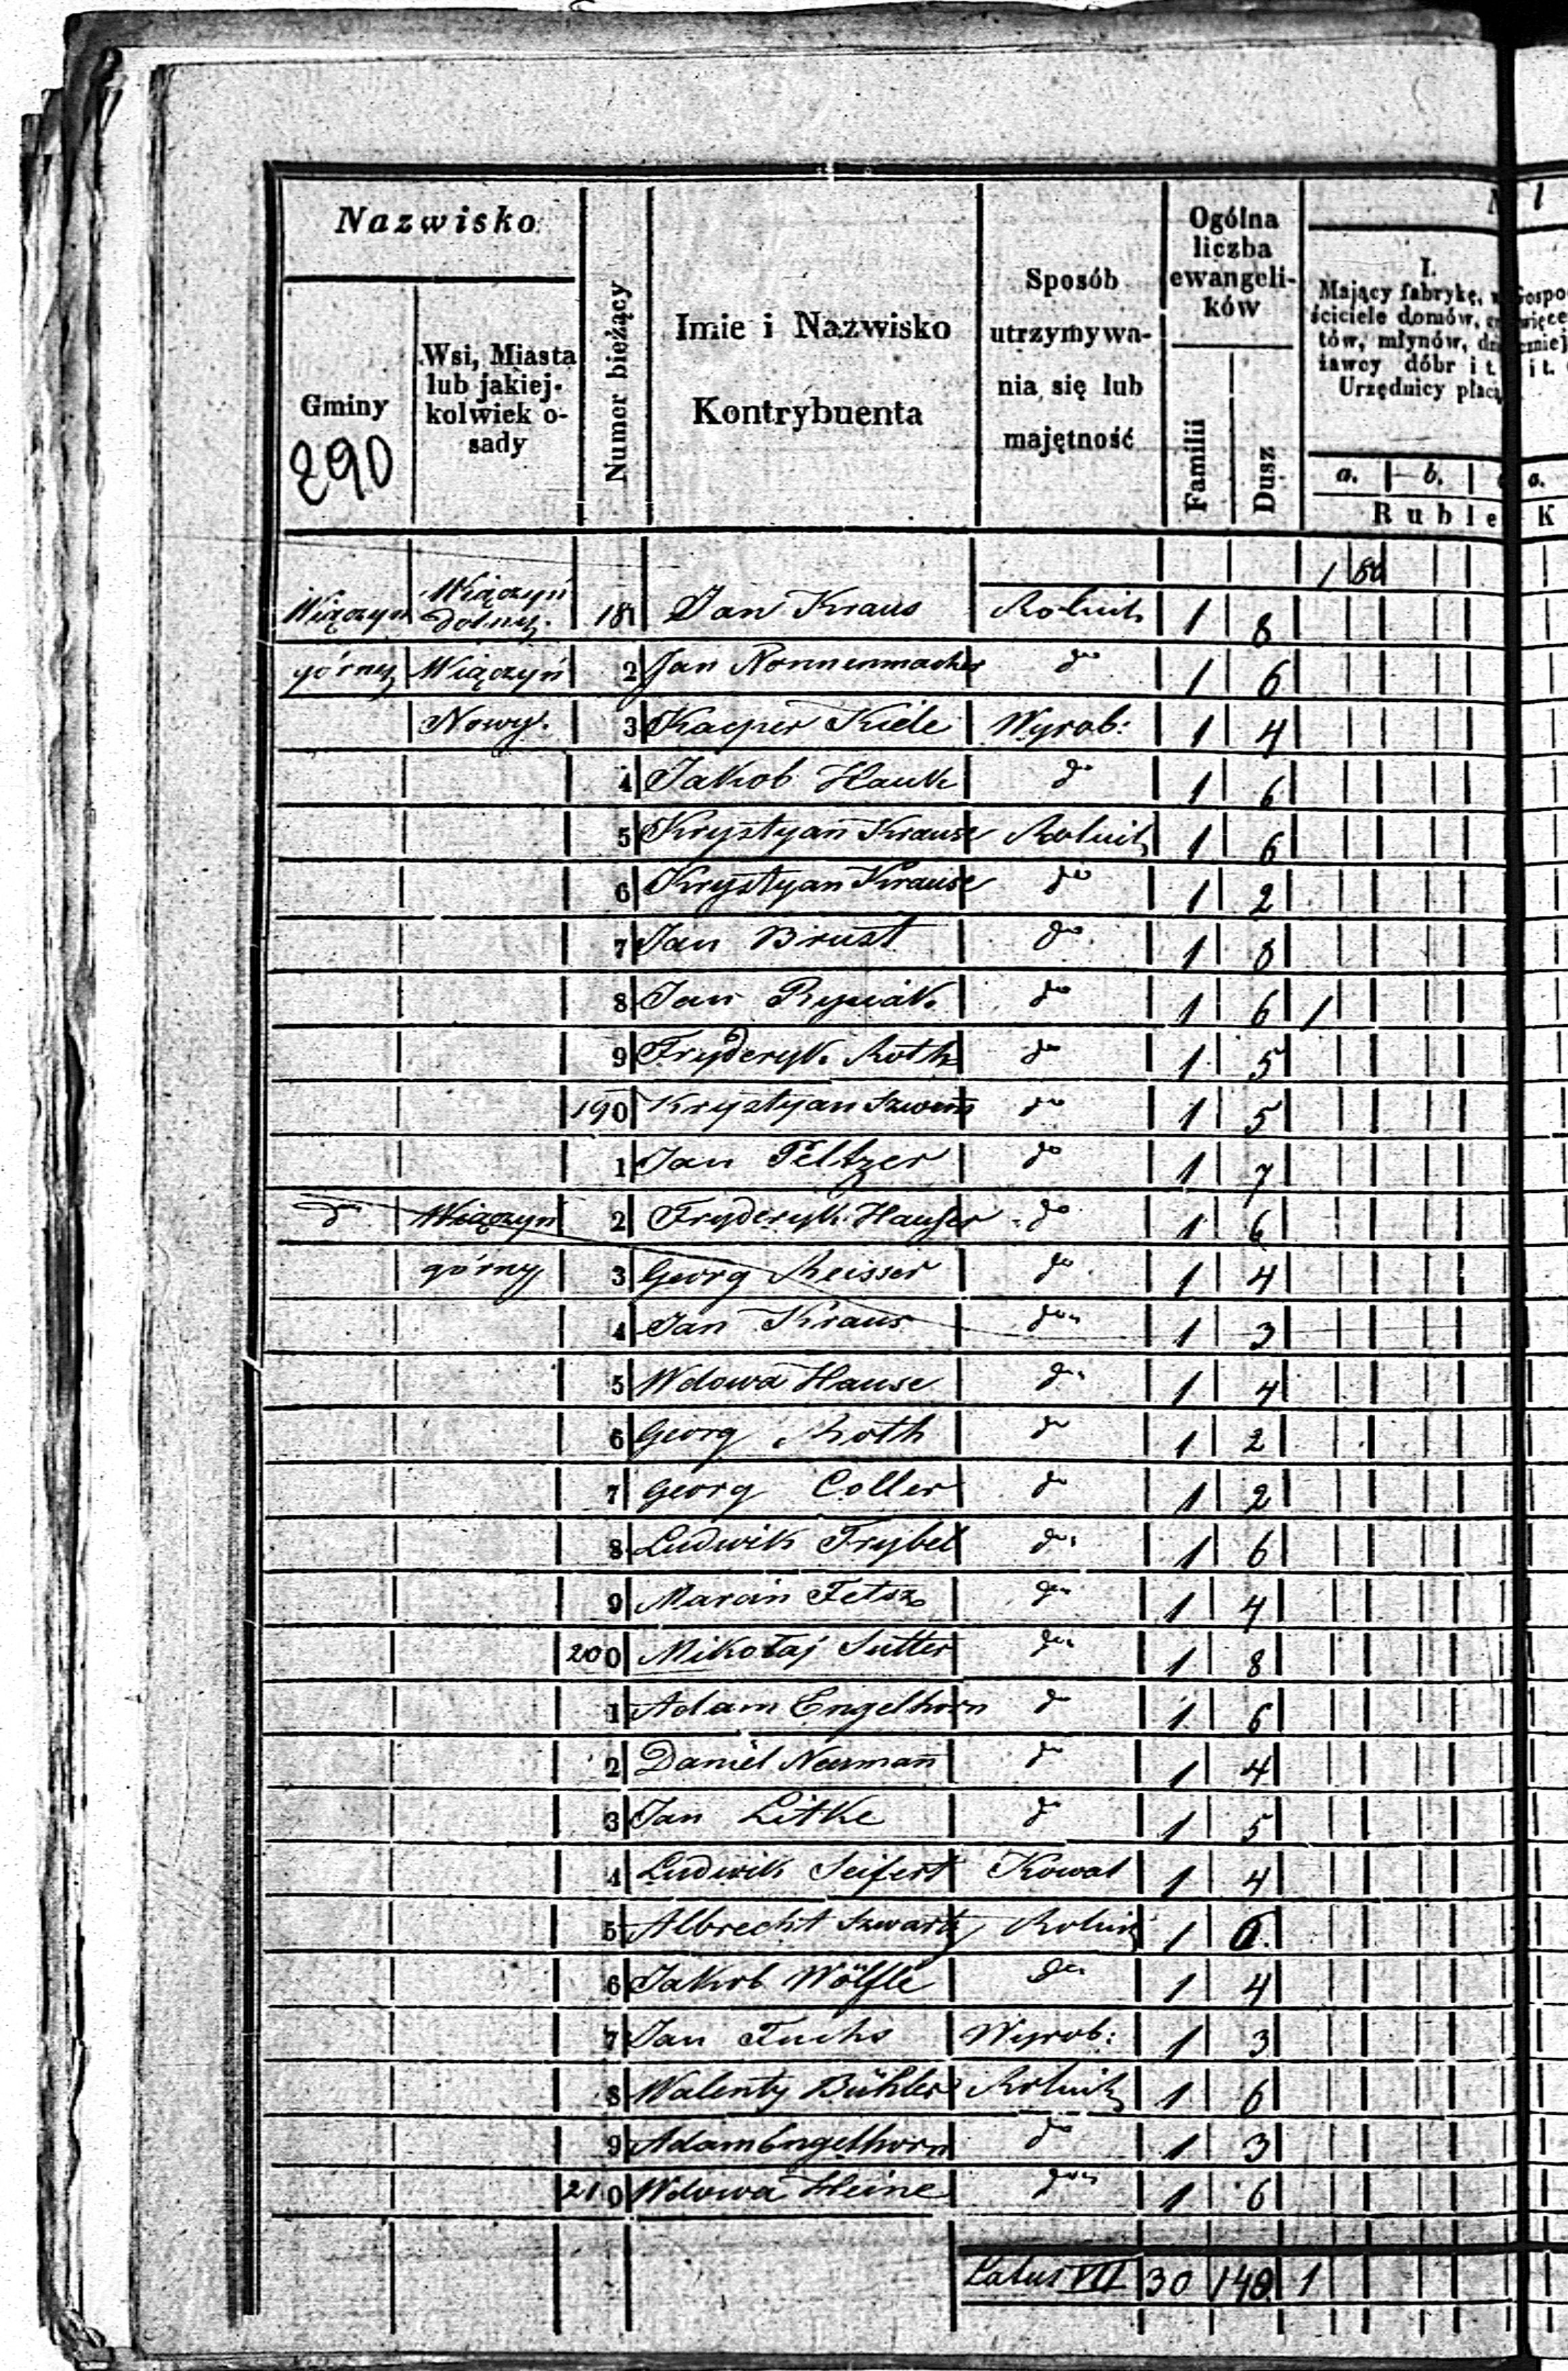 Nazwisko
Gminy
290
Wsi, Miasta
lub jakiej-
kolwiek o-
sady
Numer bieżący
Imie i Nazwisko
Kontrybuenta
Sposób
utrzymywa-
nia się lub
majętność
Ogólna
liczba
ewangeli-
ków
Familii
Dusz
I.
Mający fabrykę,
ściciele domów,
tów, młynów,
żawcy dóbr i t.
Urzędnicy płacą
a. b. a.
Ruble K
1 80
Wiączyń Wiączyń dolny 181 Jan Kraus Rolnik 1 8
górny Wiączyń 2 Jan Nonnenmacher do 1 6
Nowy. 3 Kacper Kiele Wyrob: 1 4
4 Jakob Hauk do 1 6
5 Krystyan Krause Rolnik 1 6
6 Krystyan Krause do 1 2
7 Jan Brust do 1 8
8 Jan Rysiak do 1 6 1
9 Fryderyk Roth do 1 5
190 Krystyan do 1 5
1 Jan Peltzer do 1 7
do Wiączyń 2 Fryderyk Hauser do 1 6
górny 3 Georg Meisser do 1 4
4 Jan Kraus do 1 3
5 Wdowa Hause do 1 4
6 Georg Roth do 1 2
7 Georg Coller do 1 2
8 Ludwik Frybel do 1 6
9 Marcin Fetsz do 1 4
200 Mikołaj Sutter do 1 8
1 Adam Engelhorn do 1 6
2 Daniel Neumann do 1 4
3 Jan Litke do 1 5
4 Ludwik Seifert Kowal 1 4
5 Albrecht Szwartz Rolnik 1 6
6 Jakob Wölfle do 1 4
7 Jan Fuchs Wyrob: 1 3
8 Walenty Bühler Rolnik 1 6
9 Adam Engelhorn do 1 3
210 Wdowa Heine do 1 6
Latus VII 30 149 1